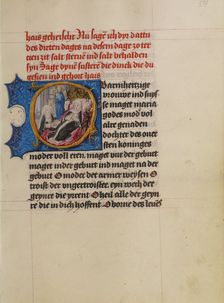 haiß geherscht Nu saget ich dyr dattu
des dirten dages na desem dage zo ter
cen zit salt steruen ind salt behalden
syn dage dyns susters die dinck du
gesien ind gehort hais
Barmhertzige
vrouwe ind suys
se maget maria
godes moder vol
alre genaden
dochter des oui
sten koninges
moder vol eeren maget vur der geburt
maget in der geburt maget na der ge
burt O moder der armer weysen O
troist der ungetroister eyn roych der
geyne die yrrent O heil alle der gey
nre die in dich hoffent O borne des leues